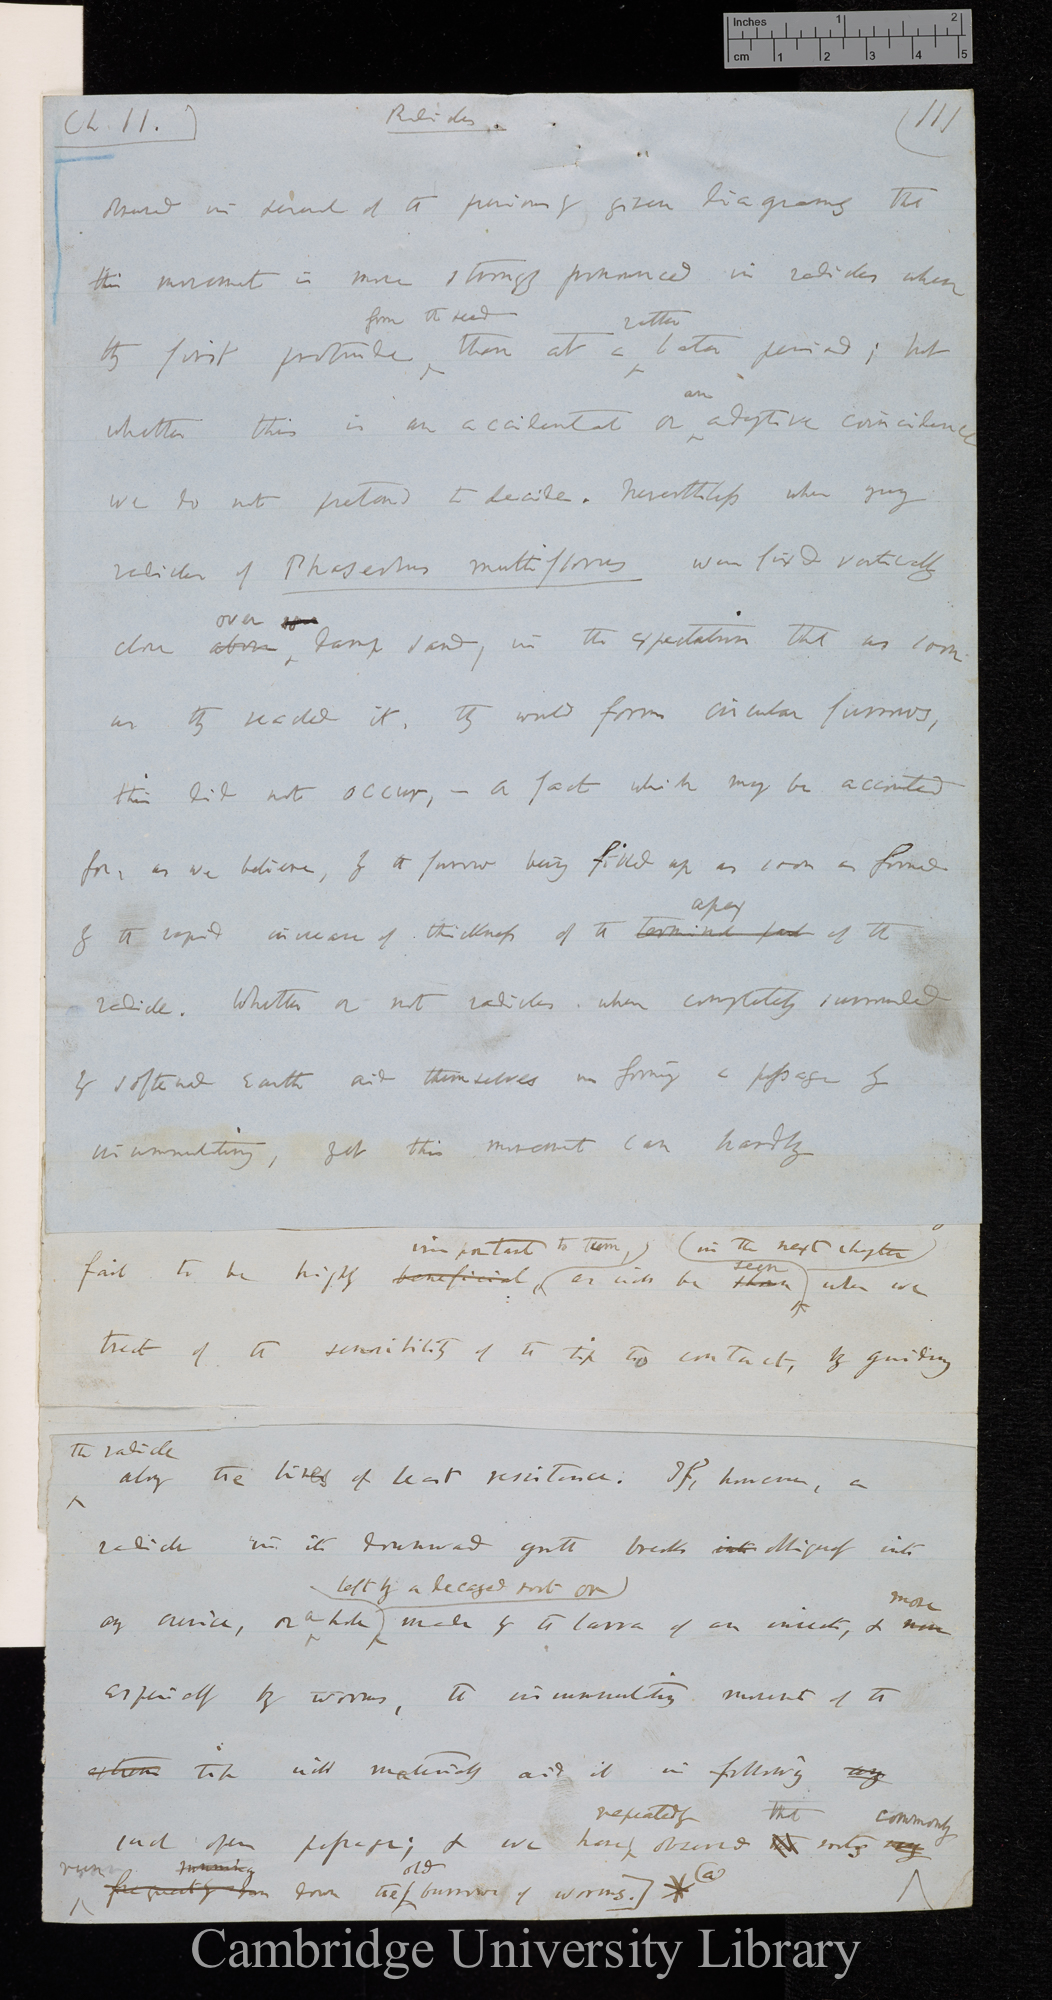 Inches 1 2
cm 1 2 3 4 5
Ch 11. Radicles. (111
observed in several of the previously given diagrams that
this movement is more strongly pronounced in radicles when
from the seed rather
they first protrude than at a later period; but
an
whether this is an accidental or adaptive coincidence
we do not pretend to decide. Nevertheless when young
radicles of Phaseolus multiflorus were fixed vertically
over some
close above damp sand, in the expectation that as soon
as they reached it, they would form circular furrows,
this did not occur, – a fact which may be accounted
for, as we believe, by the furrow being filled up as soon as formed
apex
by the rapid increase of thickness of the terminal part of the
radicle. Whether or not radicles when completely surrounded
by softened earth aid themselves in forming a passage by
circumnutating, yet this movement can hardly
important to them,) (in the next chapter
seen
fail to be highly beneficial, as will be shown) when we
treat of the sensibility of the tip to contact, by guiding
the radicle
along the lines of least resistance. If, however, a
radicle in its downward growth breaks into obliquely into
left by a decayed root or)
more
any crevice, or a hole) made by the larva of an insect, & more
especially by worms, the circumnutating movement of the
extreme tip will materially aid it in following any
repeatedly that commonly
such open passage; & we have observed that roots may
run running old
frequently run down the [burrows of worms.] * (a)
Cambridge University Library